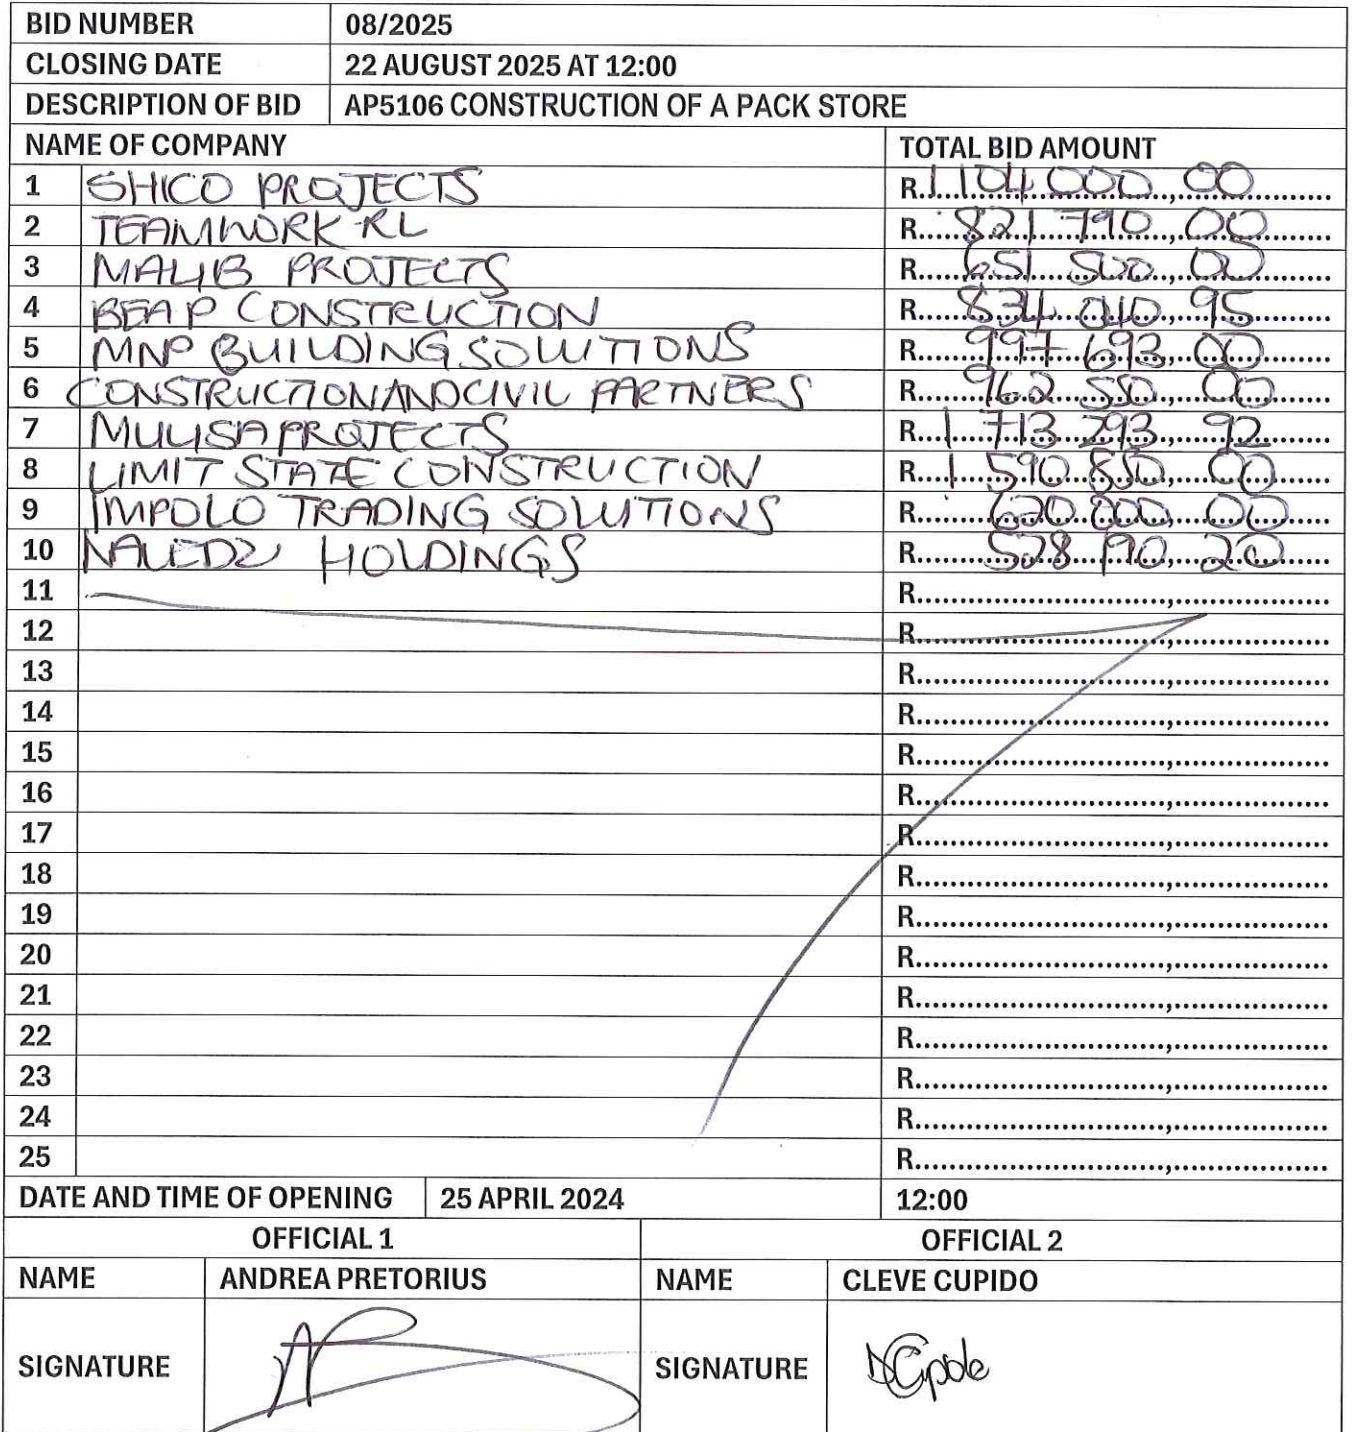 BID NUMBER 08/2025
CLOSING DATE 22 AUGUST 2025 AT 12:00
DESCRIPTION OF BID AP5106 CONSTRUCTION OF A PACK STORE
NAME OF COMPANY TOTAL BID AMOUNT
1 SHICO PROJECTS R 1 104 000, 00
2 TEAMWORK RL R 821 790, 00
3 MALIB PROJECTS R 651 500, 00
4 BEAP CONSTRUCTION R 834 040, 95
5 MNP BUILDING SOLUTIONS R 997 693, 00
6 CONSTRUCTION AND CIVIL PARTNERS R 962 550, 00
7 MULISA PROJECTS R 1 713 293, 92
8 LIMIT STATE CONSTRUCTION R 1 590 850, 00
9 IMPOLO TRADING SOLUTIONS R 620 800, 00
10 NALEDZI HOLDINGS R 528 190, 20
11 R..............................,....................
12 R..............................,....................
13 R..............................,....................
14 R..............................,....................
15 R..............................,....................
16 R..............................,....................
17 R..............................,....................
18 R..............................,....................
19 R..............................,....................
20 R..............................,....................
21 R..............................,....................
22 R..............................,....................
23 R..............................,....................
24 R..............................,....................
25 R..............................,....................
DATE AND TIME OF OPENING 25 APRIL 2024 12:00
OFFICIAL 1 OFFICIAL 2
NAME ANDREA PRETORIUS NAME CLEVE CUPIDO
SIGNATURE SIGNATURE